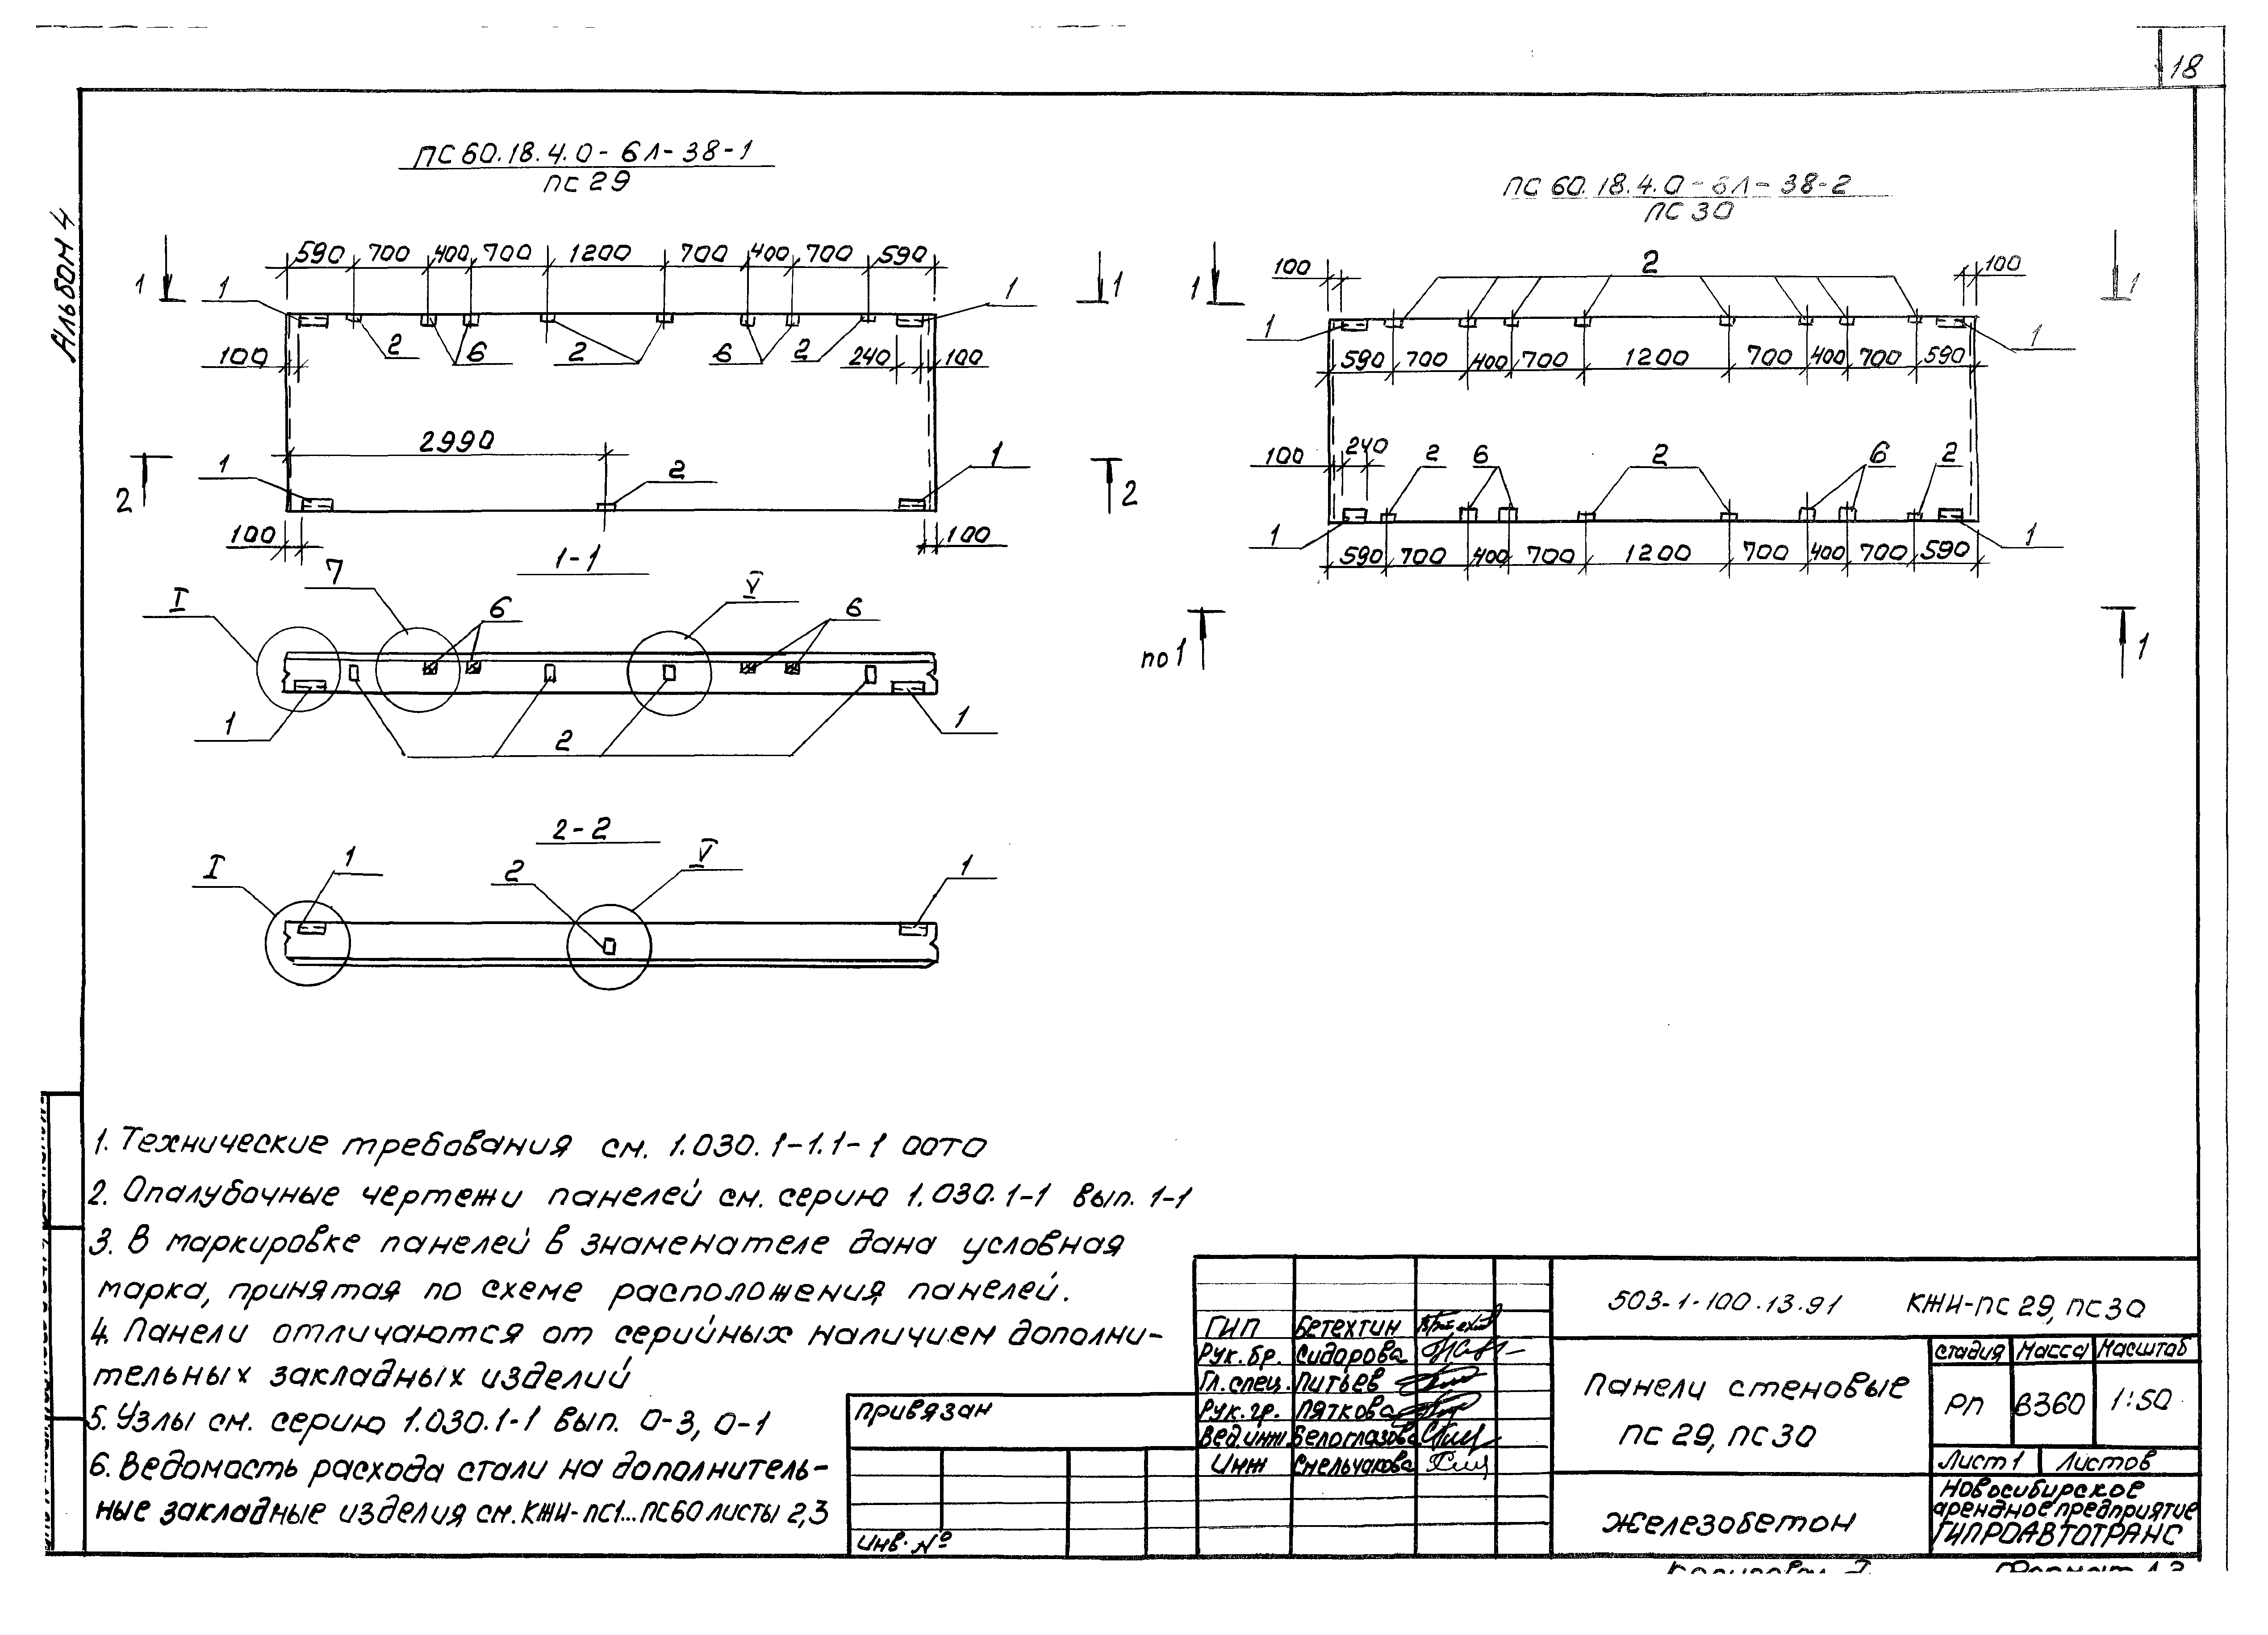 18
Альбом 4
ПС 60.18.4.0-6Л-38-1
ПС 29
590 700 400 700 1200 700 400 700 590
1 1 1 1
2 6 2 6 2
100 240 100
2990
2 1 2 1 2
100 100
1-1
I 7 6 V 6
1 2 1
2-2
I 1 2 V 1
ПС 60.18.4.0-6Л-38-2
ПС 30
100 2 100
1 1
1 1
590 700 400 700 1200 700 400 700 590
100 240 2 6 2 6 2
1 1
590 700 400 700 1200 700 400 700 590
по 1 1
1. Технические требования см. 1.030.1-1.1-1 00ТО
2. Опалубочные чертежи панелей см. серию 1.030.1-1 вып. 1-1
3. В маркировке панелей в знаменателе дана условная
марка, принятая по схеме расположения панелей.
4. Панели отличаются от серийных наличием дополни-
тельных закладных изделий
5. Узлы см. серию 1.030.1-1 вып. 0-3, 0-1
6. Ведомость расхода стали на дополнитель-
ные закладные изделия см. КЖИ-ПС1...ПС60 листы 2,3
привязан
Инв. №
ГИП Бетехтин
Рук. бр. Сидорова
Гл. спец. Питьев
Рук. гр. Пяткова
Вед. инж Белоглазова
Инж Смельчакова
503-1-100.13.91 КЖИ-ПС 29, ПС 30
Панели стеновые
ПС 29, ПС 30
Стадия Масса Масштаб
РП 8360 1:50
Лист 1 Листов
Железобетон
Новосибирское
арендное предприятие
ГИПРОАВТОТРАНС